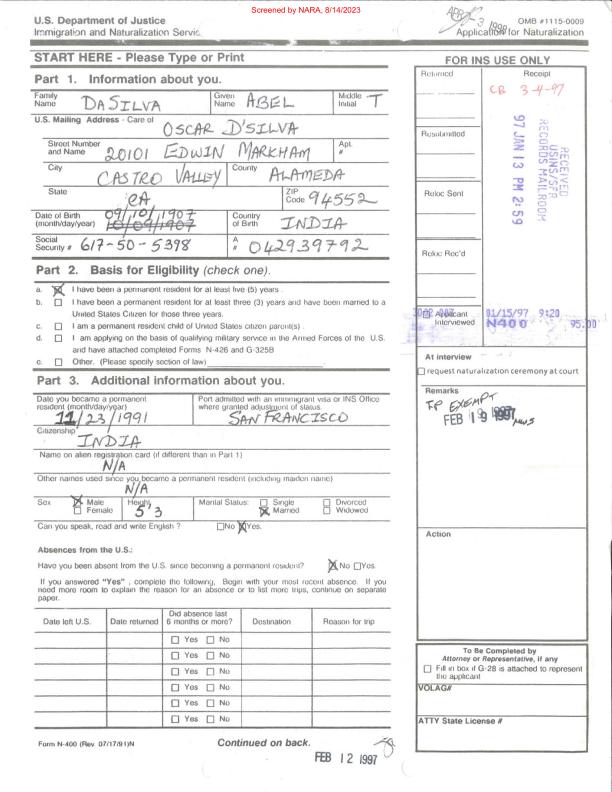 Screened by NARA, 8/14/2023
U.S. Department of Justice
Immigration and Naturalization Servic
OMB #1115-0009
Application for Naturalization
START HERE - Please Type or Print
Part 1. Information about you.
Family Name DASILVA Given Name ABEL Middle Initial T
U.S. Mailing Address - Care of OSCAR D'SILVA
Street Number and Name 20101 EDWIN MARKHAM Apt. #
City CASTRO VALLEY County ALAMEDA
State CA ZIP Code 94552
Date of Birth (month/day/year) 09/10/1907 10/09/1907 Country of Birth INDIA
Social Security # 617-50-5398 A # 042939792
Part 2. Basis for Eligibility (check one).
a. I have been a permanent resident for at least five (5) years .
b. I have been a permanent resident for at least three (3) years and have been married to a
United States Citizen for those three years.
c. I am a permanent resident child of United States citizen parent(s) .
d. I am applying on the basis of qualifying military service in the Armed Forces of the U.S.
and have attached completed Forms N-426 and G-325B
e. Other. (Please specify section of law)
Part 3. Additional information about you.
Date you became a permanent resident (month/day/year) 11/23/1991
Port admitted with an immigrant visa or INS Office where granted adjustment of status. SAN FRANCISCO
Citizenship INDIA
Name on alien registration card (if different than in Part 1)
N/A
Other names used since you became a permanent resident (including maiden name)
N/A
Sex Male Female Height 5'3 Marital Status: Single Married Divorced Widowed
Can you speak, read and write English ? No Yes.
Absences from the U.S.:
Have you been absent from the U.S. since becoming a permanent resident? No Yes.
If you answered "Yes" , complete the following, Begin with your most recent absence. If you
need more room to explain the reason for an absence or to list more trips, continue on separate
paper.
Date left U.S. Date returned Did absence last 6 months or more? Destination Reason for trip
Yes No
Yes No
Yes No
Yes No
Yes No
Yes No
Form N-400 (Rev 07/17/91)N
Continued on back.
FEB 12 1997
FOR INS USE ONLY
Returned Receipt
CB 3-4-97
Resubmitted
RECEIVED
USINS/SFR
RECORDS MAILROOM
97 JAN 13 PM 2:59
Reloc Sent
Reloc Rec'd
Applicant Interviewed
01/15/97 9:20
N400 95.00
At interview
request naturalization ceremony at court
Remarks
TP EXEMPT
FEB 19 1997
Action
To Be Completed by
Attorney or Representative, if any
Fill in box if G-28 is attached to represent
the applicant
VOLAG#
ATTY State License #